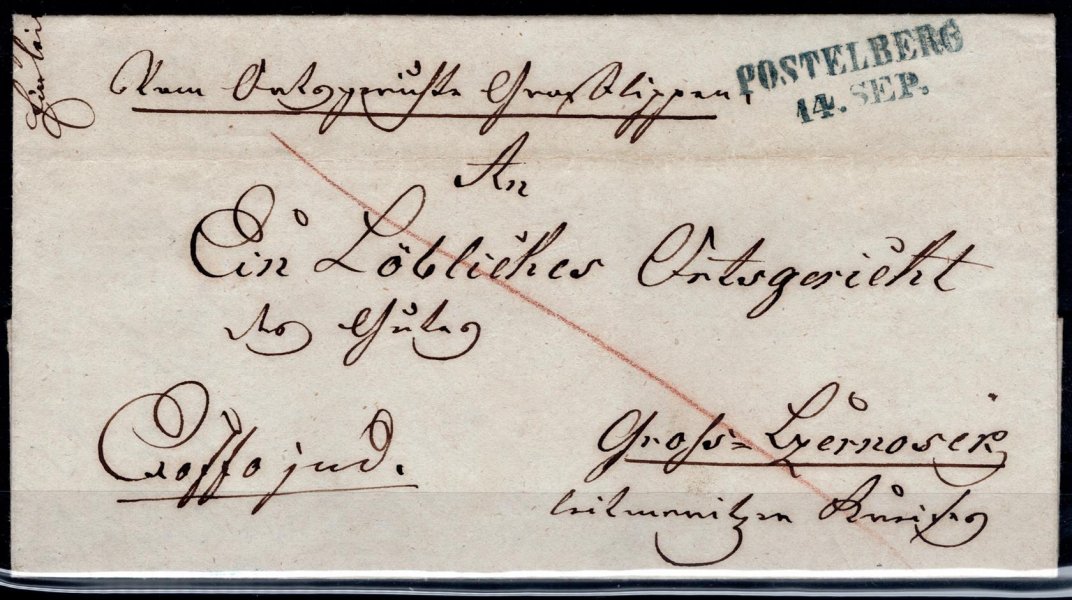 Vom Ortsgerichte Großlippen.
POSTELBERG
14. SEP.
An
Ein Löbliches Ortsgericht
des Gutes
Ex offo jud.
Gross= Czernosek
leitmeritzer Kreises